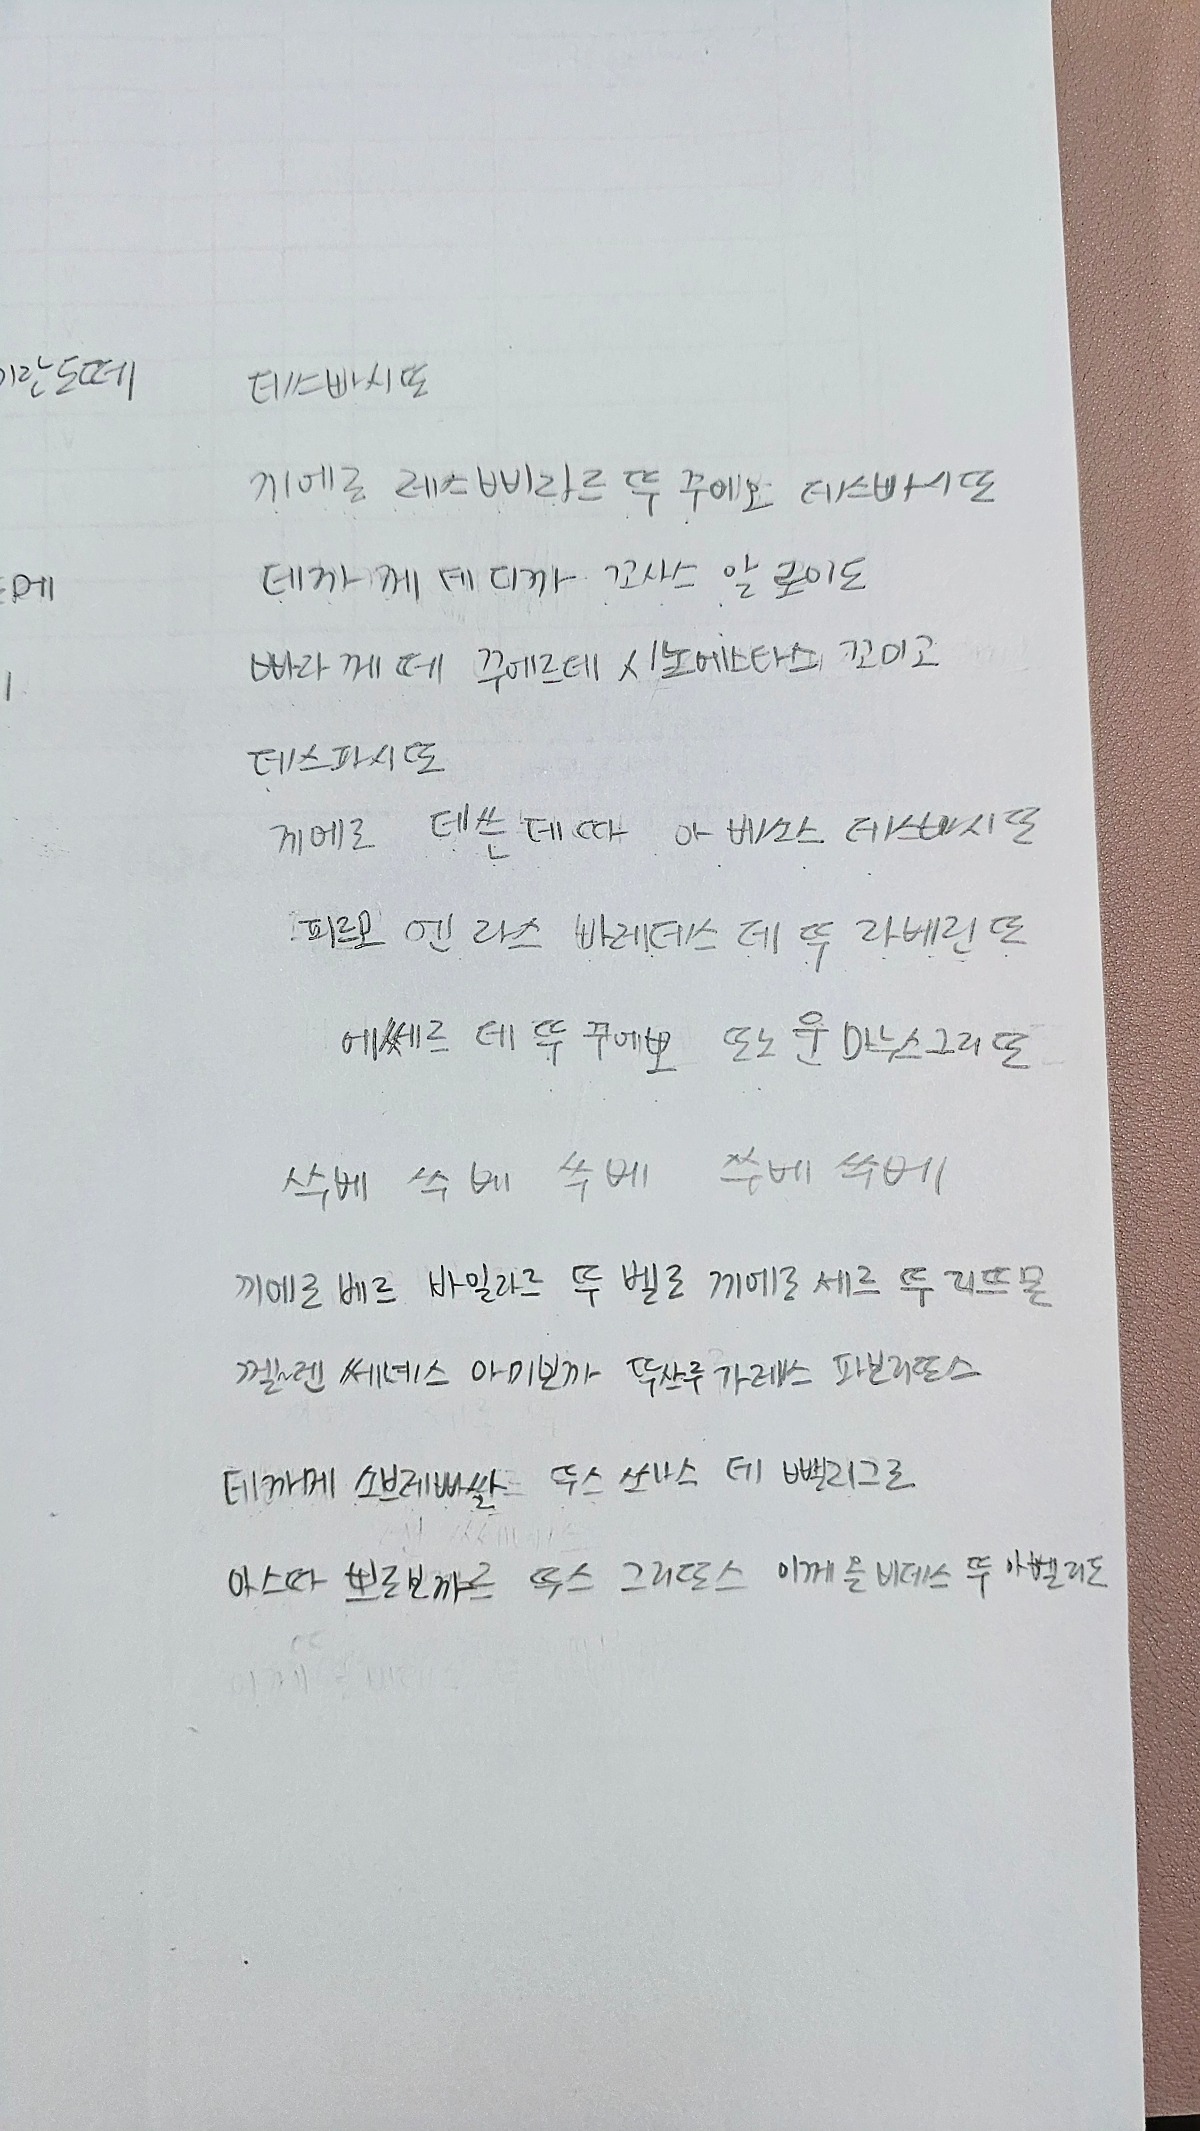 데스빠시또
끼에로 레스삐라르 뚜 꾸에요 데스빠시또
데까 께 떼 디까 꼬사스 알 로이도
빠라 께 떼 꾸에르데 시노에스타스 꼬미고
데스파시또
끼에로 데쓴데따 아 베소스 데스빠시또
피르모 엔 라스 빠레데스 데 뚜 라베린또
에쎄르 데 뚜 꾸에뽀 또노 운 마누스그리또
쑤베 쑤베 쑤베 쑤베 쑤베
끼에로 베르 바일라르 뚜 벨로 끼에로 세르 뚜 리뜨몬
껠렌 쎄녜스 아미보까 뚜산루가레스 파보리또스
데까메 소브레빠쌀 뚜스 쏘나스 데 뻭리그로
아스따 쁘로보까르 뚜스 그리또스 이께 올비데스 뚜 아뻴리도